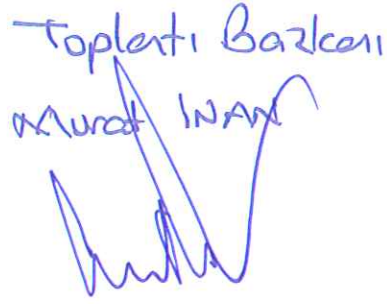 Toplantı Başkanı
Murat İNAN